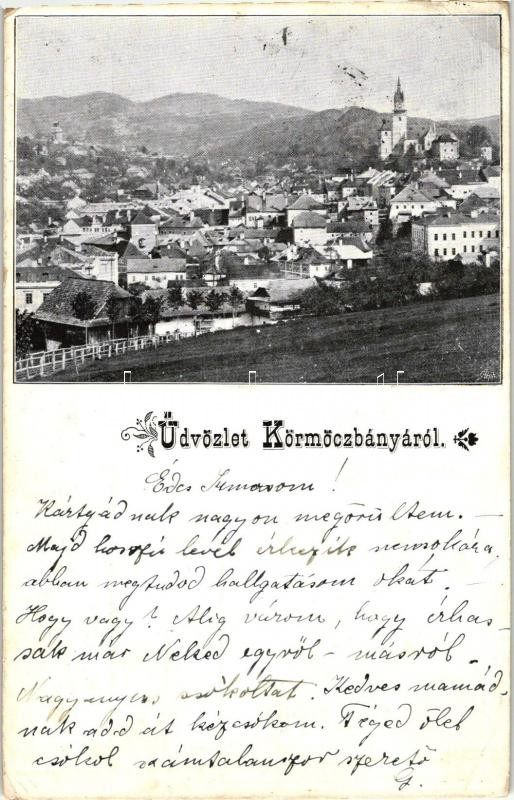 Üdvözlet Körmöczbányáról.
Édes Irmosom!
Kártyádnak nagyon megörültem. –
Majd hosszú levél érkezik nemsokára,
abban megtudod hallgatásom okát.
Hogy vagy? Alig várom, hogy írhas-
sak már Neked egyről-másról
csókoltat. Kedves mamád-
nak add át kézcsókom. Téged ölel
csókol számtalanszor szerető